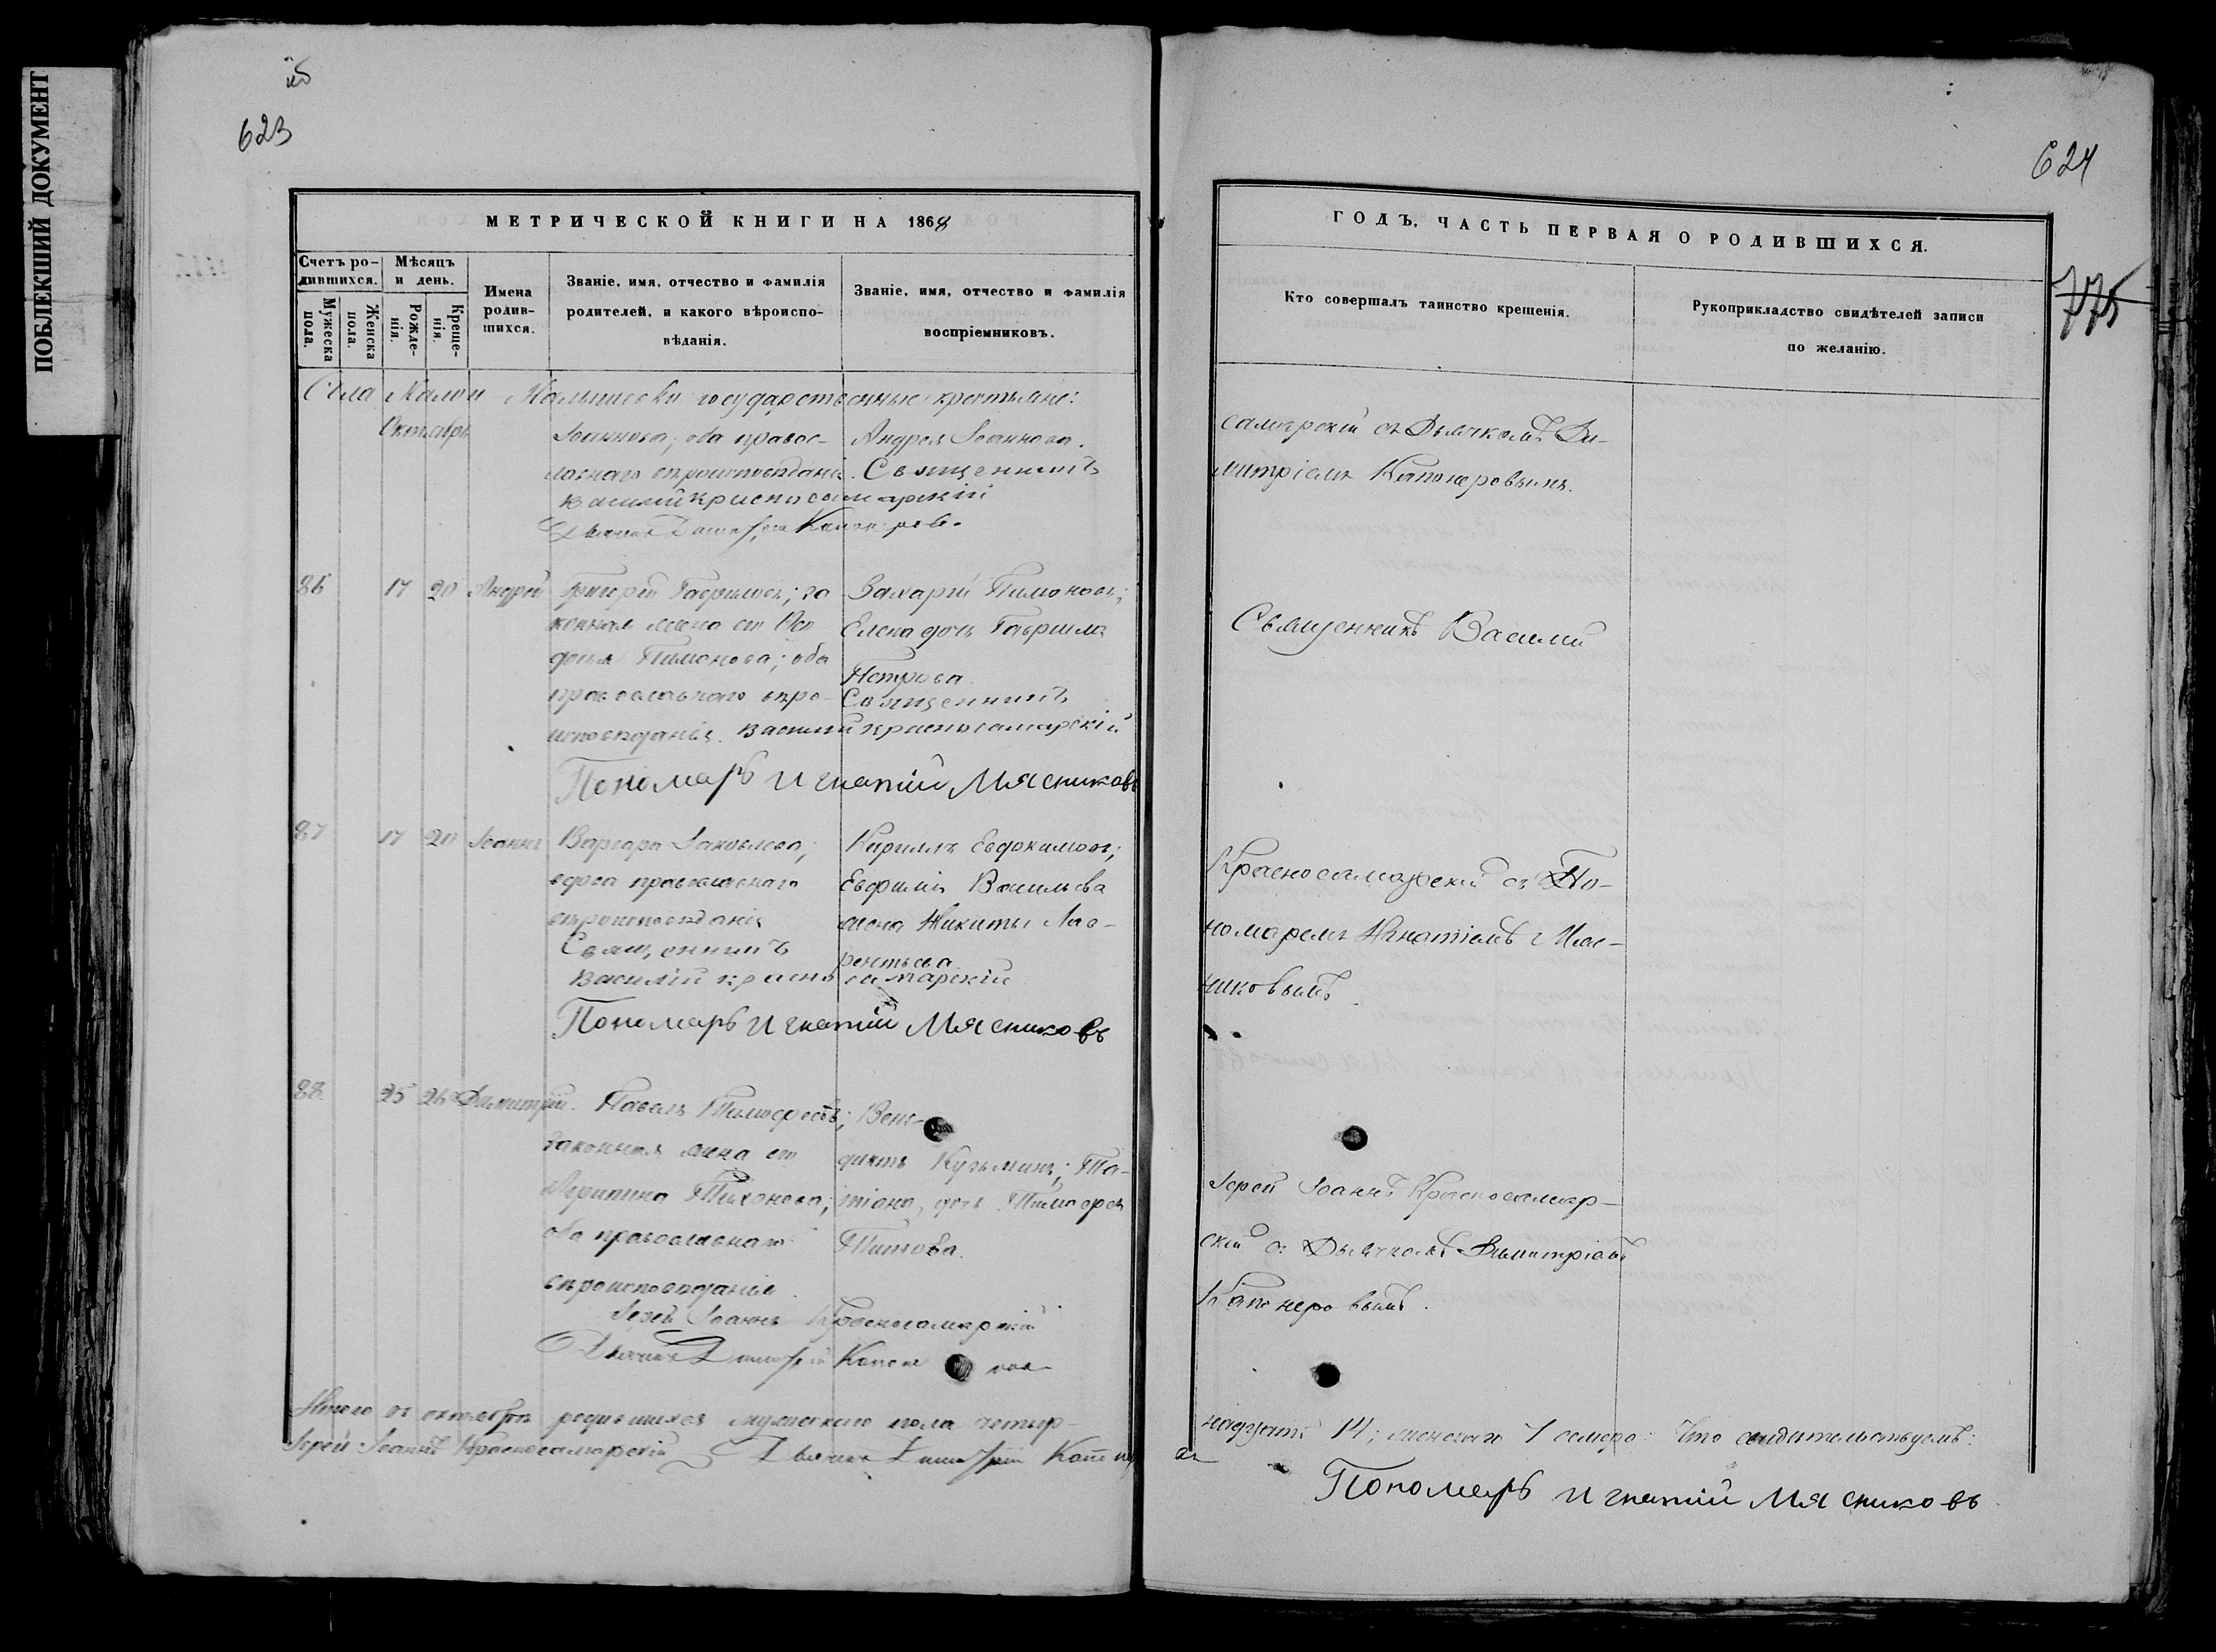 ПОБЛЕКШИЙ ДОКУМЕНТ
623
МЕТРИЧЕСКОЙ КНИГИ НА 1868
Счетъ ро-
дившихся.
Мѣсяцъ
и день.
Мужеска
пола.
Женска
пола.
Рожде-
нія.
Креще-
нія.
Имена
родив-
шихся.
Званіе, имя, отчество и фамилія
родителей, и какого вѣроиспо-
вѣданія.
Званіе, имя, отчество и фамилія
воспріемниковъ.
Села Малой Малышевки государственные крестьяне:
Октябрь
Іоаннова; оба правос-
лавнаго вѣроисповѣданія.
Андрея Іоаннова.
Священникъ
Василий красносамарскій
Дьячекъ Димитрій
86 17 20 Андрей
Григорій Гавриловъ; за
конная жена его
Пимонова; оба
православнаго вѣро-
исповѣданія.
Захарій Пимоновъ;
Елена дочь Гавриила
Петрова
Священникъ
Василий красносамарскій
Пономарь Игнатій Мясниковъ
87 17 20 Іоаннъ
Варвара Іаковлева;
вдова православнаго
вѣроисповѣданія
Кириллъ Евдокимовъ;
Евфимія Васильева
жена Никиты Лав-
рентьева
Священникъ
Василий красносамарскій
Пономарь Игнатій Мясниковъ
88 25 26 Димитрій.
Павелъ Тимофеевъ;
законная жена его
Агрипина Тихонова;
оба православнаго
вѣроисповѣданія.
Вене-
диктъ Кузьминъ; Та-
тіана, дочь Тимофея
Титова.
Іерей Іоаннъ Красносамарскій
Дьячекъ Димитрій
Итого въ октябрѣ родившихся мужескаго пола четыр-
Іерей Іоаннъ Красносамарскій Дьячекъ Димитрій
624
775
ГОДЪ, ЧАСТЬ ПЕРВАЯ О РОДИВШИХСЯ.
Кто совершалъ таинство крещенія.
Рукоприкладство свидѣтелей записи
по желанію.
самарскій съ Дьячкомъ Ди-
митріемъ Капонеровымъ.
Священникъ Василий
Красносамарскій съ По-
номаремъ Игнатіемъ Мяс-
никовымъ.
Іерей Іоаннъ Красносамар-
скій съ Дьячкомъ Димитріемъ
Капонеровымъ.
надцать 14; женскаго 7 семеро: Что свидѣтельствуемъ:
Пономарь Игнатій Мясниковъ